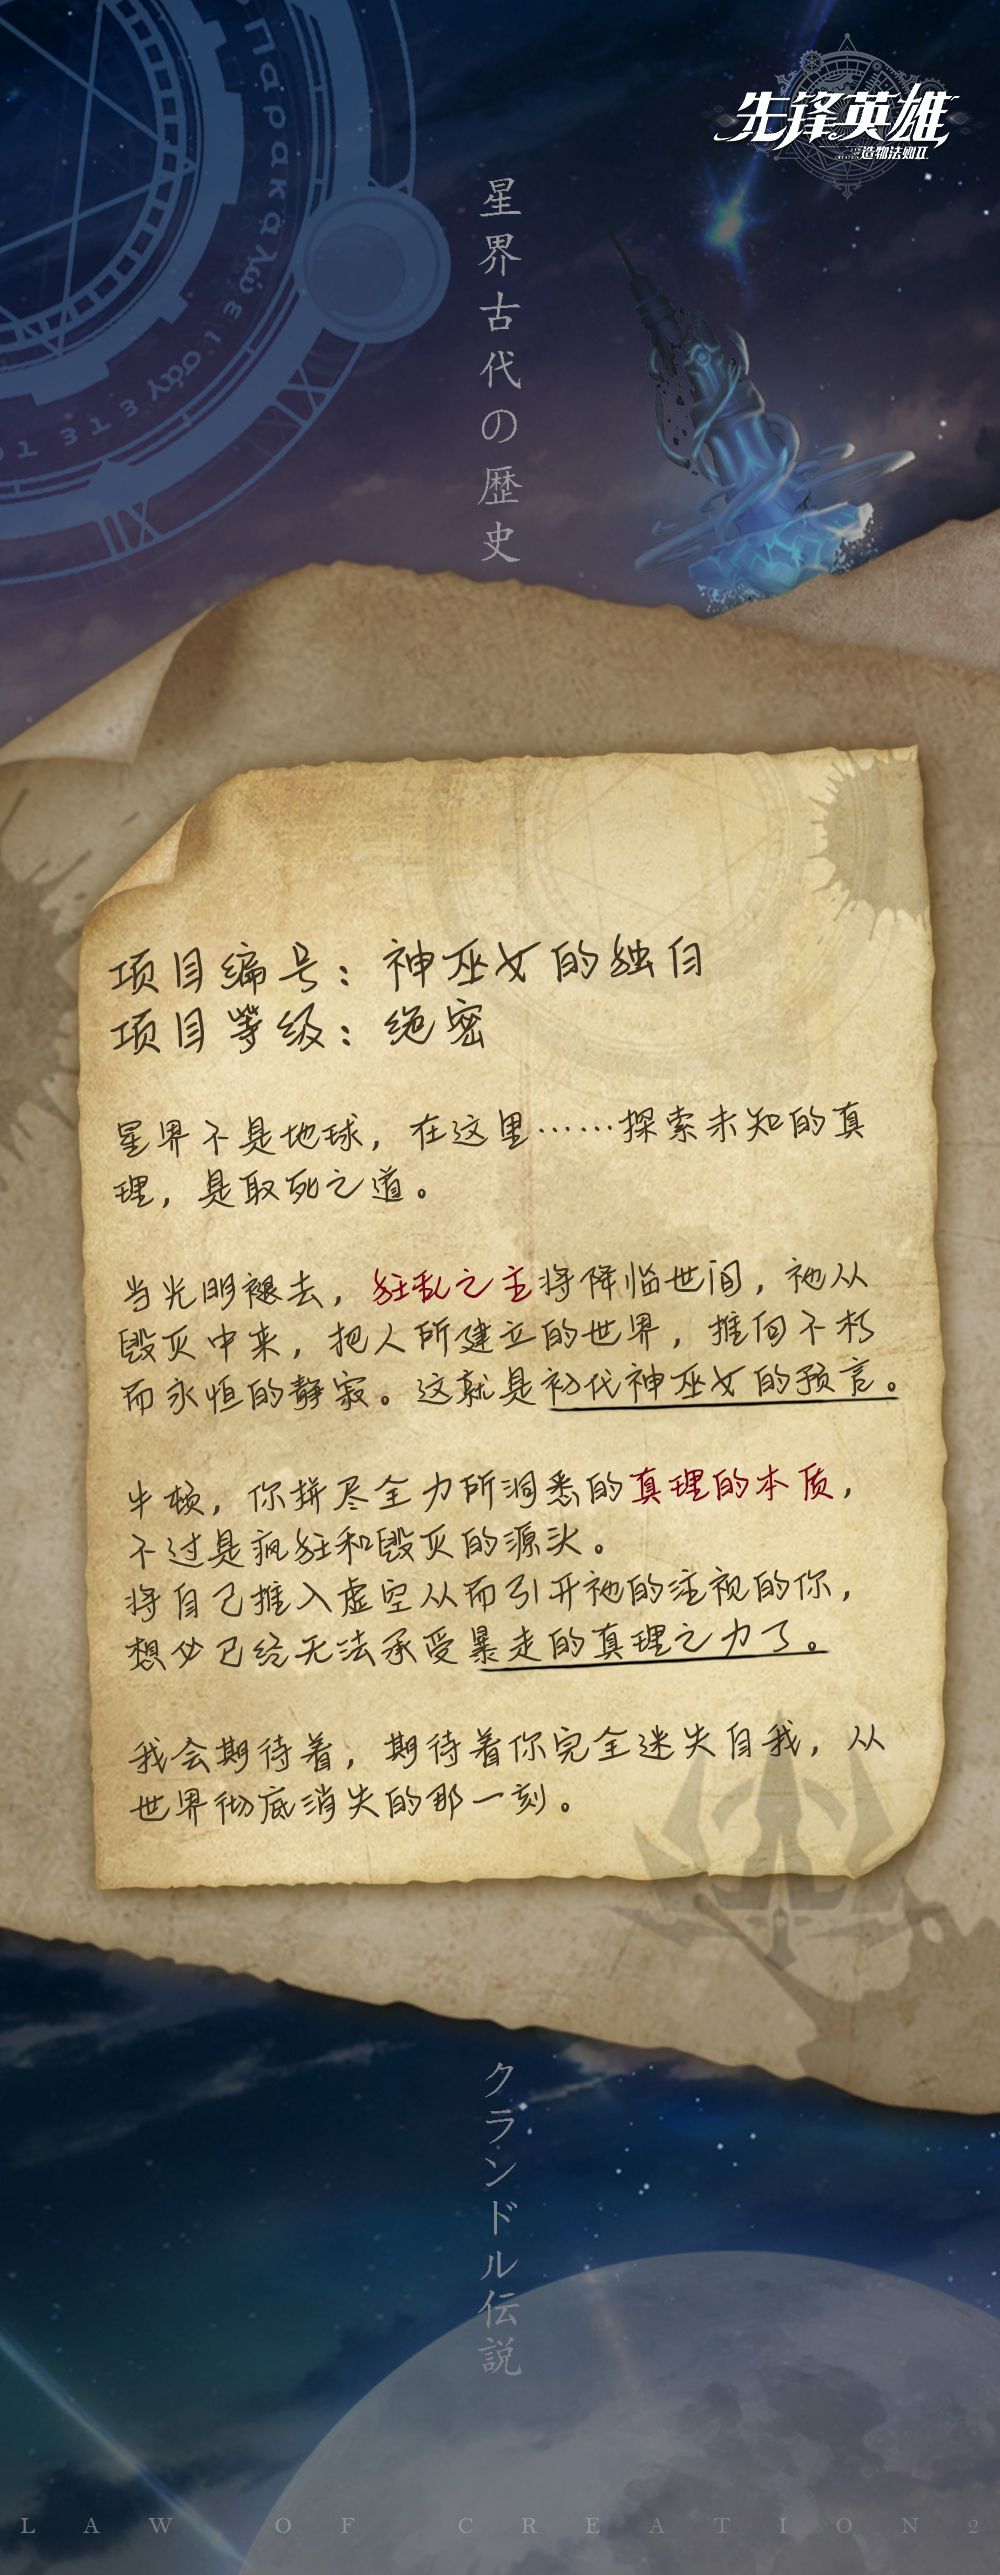 先锋英雄
造物法则II
星界古代の歴史
项目编号：神巫女的独白
项目等级：绝密
星界不是地球，在这里……探索未知的真
理，是取死之道。
当光明褪去，狂乱之主将降临世间，祂从
毁灭中来，把人所建立的世界，推向不朽
而永恒的静寂。这就是初代神巫女的预言。
牛顿，你拼尽全力所洞悉的真理的本质，
不过是疯狂和毁灭的源头。
将自己推入虚空从而引开祂的注视的你，
想必已经无法承受暴走的真理之力了。
我会期待着，期待着你完全迷失自我，从
世界彻底消失的那一刻。
クランドル伝説
LAW OF CREATION2